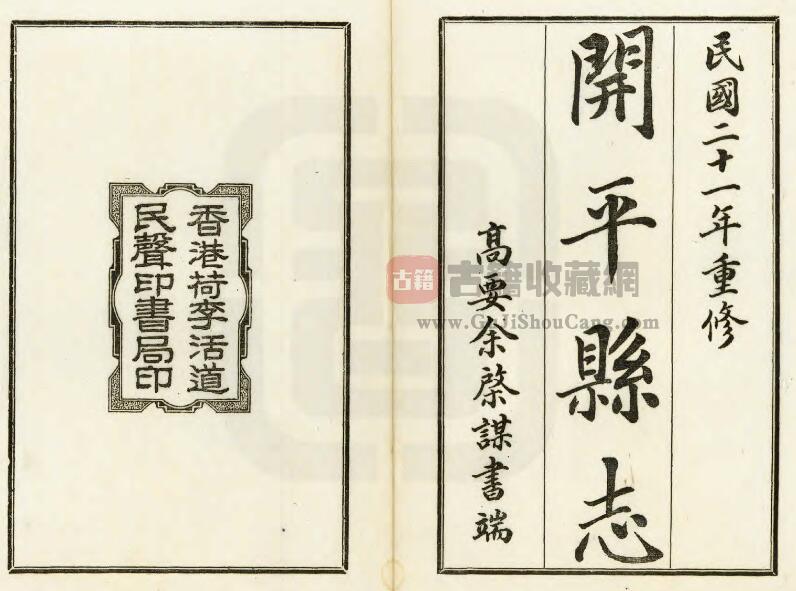 民國二十一年重修
開平縣志
高要余棨謀書端
香港荷李活道
民聲印書局印
古籍
古籍收藏網
www.GuJiShouCang.com